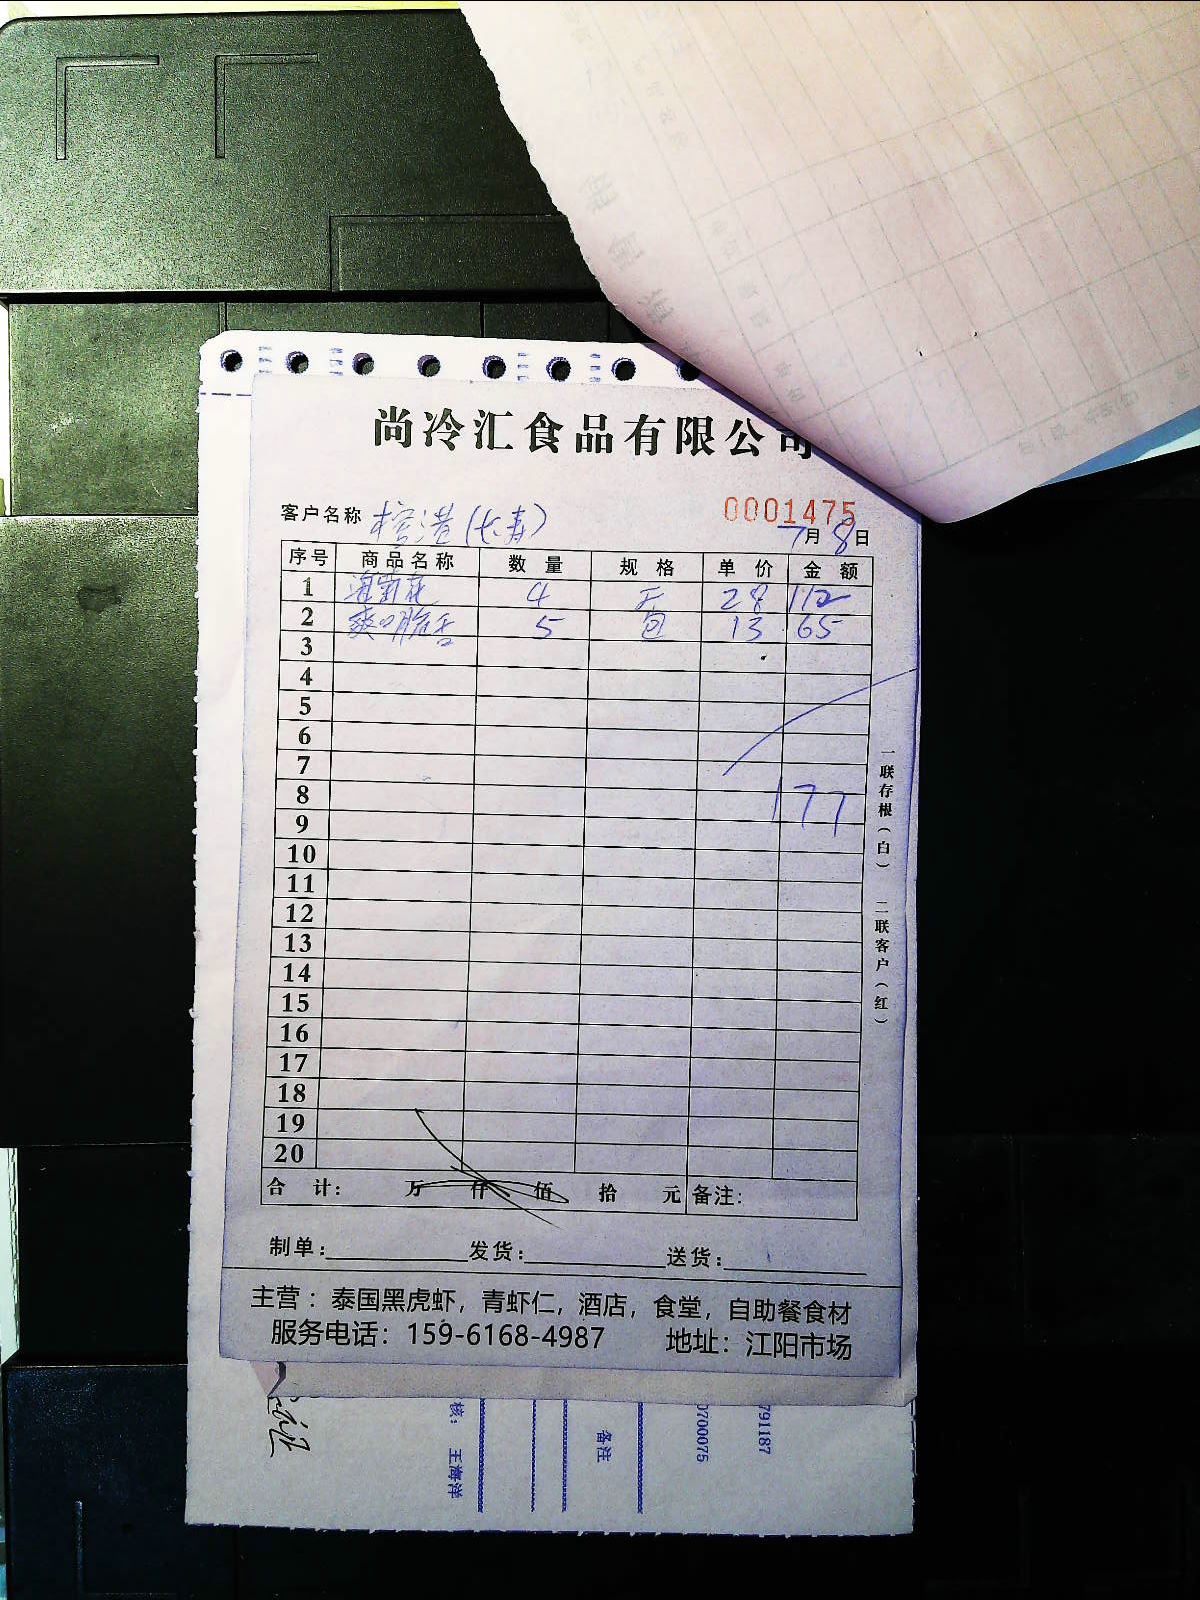 尚冷汇食品有限公司
0001475
客户名称 (长寿) 7月8日
序号 商品名称 数量 规格 单价 金额
1 4 28 112
2 爽口脆舌 5 包 13 65
3
4
5
6
7
8 177
9
10
11
12
13
14
15
16
17
18
19
20
合计: 万 仟 佰 拾 元 备注:
制单: 发货: 送货:
主营：泰国黑虎虾，青虾仁，酒店，食堂，自助餐食材
服务电话：159-6168-4987 地址：江阳市场
一联存根(白) 二联客户(红)
核: 王海洋
备注
0700075
791187